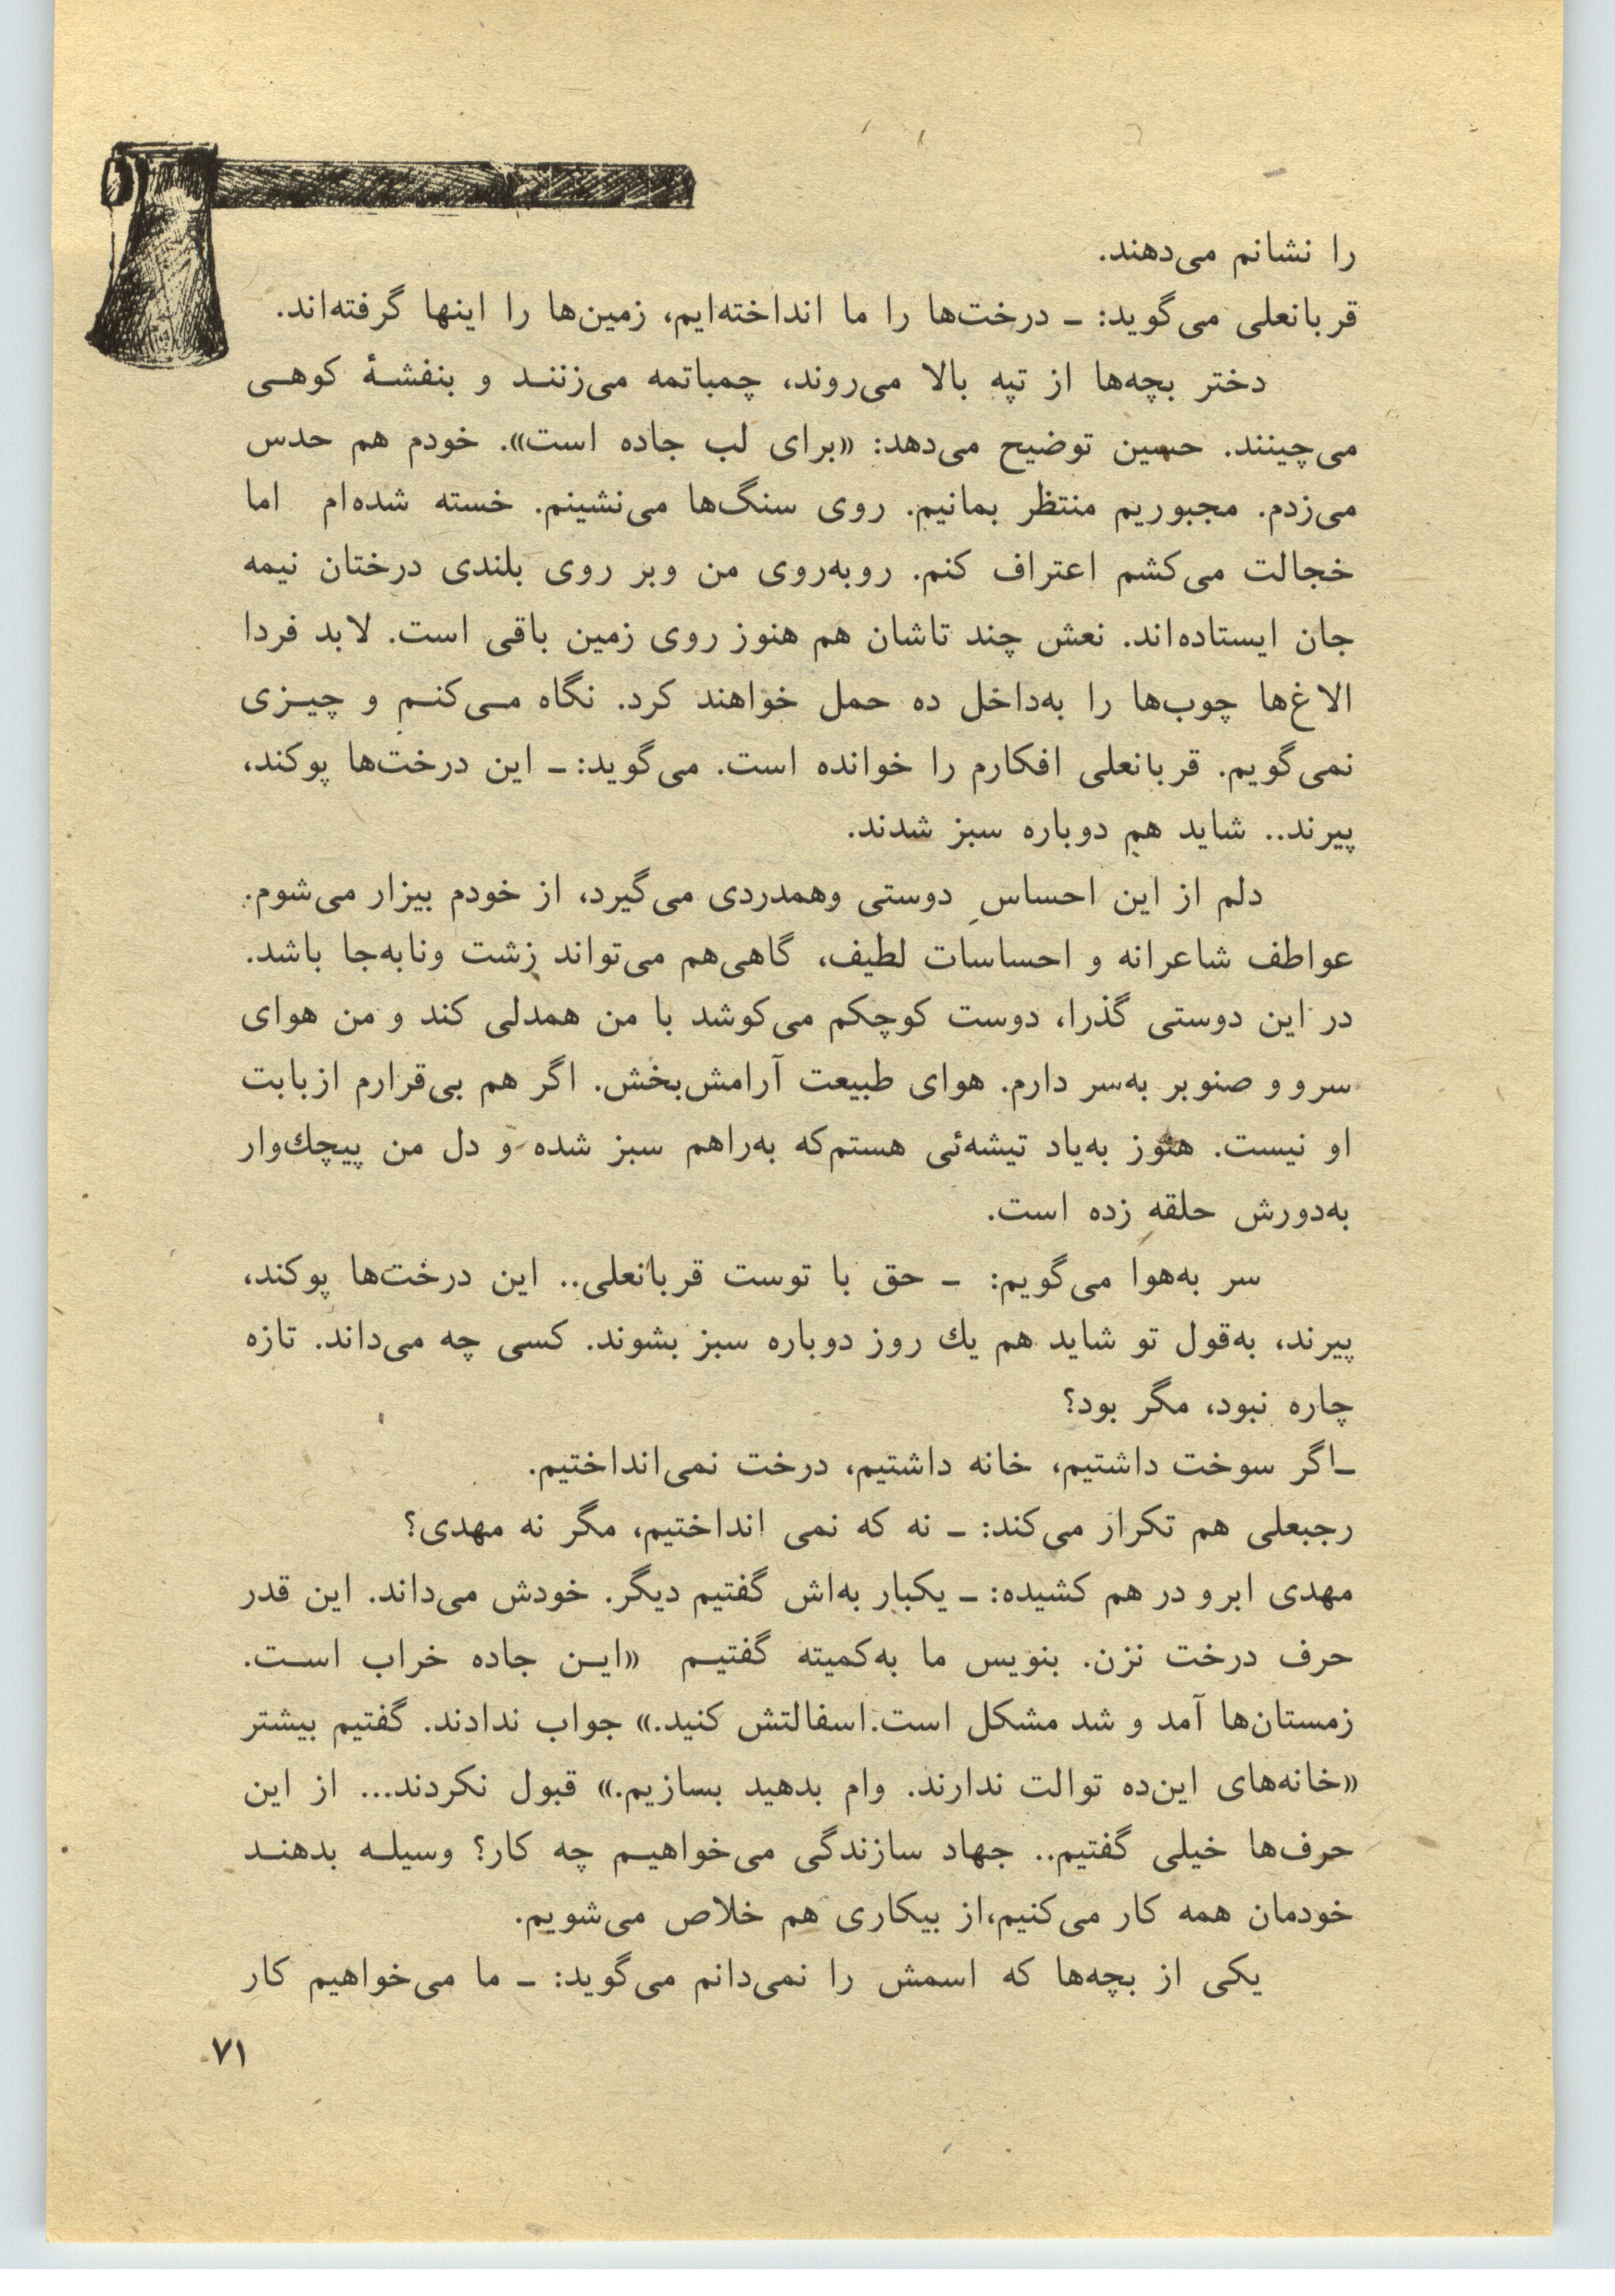 را نشانم می‌دهند.
قربانعلی می‌گوید: ـ درخت‌ها را ما انداخته‌ایم، زمین‌ها را اینها گرفته‌اند.
دختر بچه‌ها از تپه بالا می‌روند، چمباتمه می‌زننـد و بنفشـهٔ کوهـی
می‌چینند. حسین توضیح می‌دهد: «برای لب جاده است». خودم هم حدس
می‌زدم. مجبوریم منتظر بمانیم. روی سنگ‌ها می‌نشینم. خسته شده‌ام اما
خجالت می‌کشم اعتراف کنم. روبه‌روی من وبر روی بلندی درختان نیمه
جان ایستاده‌اند. نعش چند تاشان هم هنوز روی زمین باقی است. لابد فردا
الاغ‌ها چوب‌ها را به‌داخل ده حمل خواهند کرد. نگاه مـی‌کنـم و چیـزی
نمی‌گویم. قربانعلی افکارم را خوانده است. می‌گوید: ـ این درخت‌ها پوکند،
پیرند.. شاید هم دوباره سبز شدند.
دلم از این احساسِ دوستی وهمدردی می‌گیرد، از خودم بیزار می‌شوم.
عواطف شاعرانه و احساسات لطیف، گاهی‌هم می‌تواند زشت ونابه‌جا باشد.
در این دوستی گذرا، دوست کوچکم می‌کوشد با من همدلی کند و من هوای
سرو و صنوبر به‌سر دارم. هوای طبیعت آرامش‌بخش. اگر هم بی‌قرارم ازبابت
او نیست. هنوز به‌یاد تیشه‌ئی هستم‌که به‌راهم سبز شده و دل من پیچك‌وار
به‌دورش حلقه زده است.
سر به‌هوا می‌گویم: ـ حق با توست قربانعلی.. این درخت‌ها پوکند،
پیرند، به‌قول تو شاید هم یك روز دوباره سبز بشوند. کسی چه می‌داند. تازه
چاره نبود، مگر بود؟
ـاگر سوخت داشتیم، خانه داشتیم، درخت نمی‌انداختیم.
رجبعلی هم تکرار می‌کند: ـ نه که نمی انداختیم، مگر نه مهدی؟
مهدی ابرو در هم کشیده: ـ یکبار به‌اش گفتیم دیگر. خودش می‌داند. این قدر
حرف درخت نزن. بنویس ما به‌کمیته گفتیـم «ایـن جاده خراب اسـت.
زمستان‌ها آمد و شد مشکل است.اسفالتش کنید.» جواب ندادند. گفتیم بیشتر
«خانه‌های این‌ده توالت ندارند. وام بدهید بسازیم.» قبول نکردند... از این
حرف‌ها خیلی گفتیم.. جهاد سازندگی می‌خواهیـم چه کار؟ وسیلـه بدهنـد
خودمان همه کار می‌کنیم،از بیکاری هم خلاص می‌شویم.
یکی از بچه‌ها که اسمش را نمی‌دانم می‌گوید: ـ ما می‌خواهیم کار
۷۱